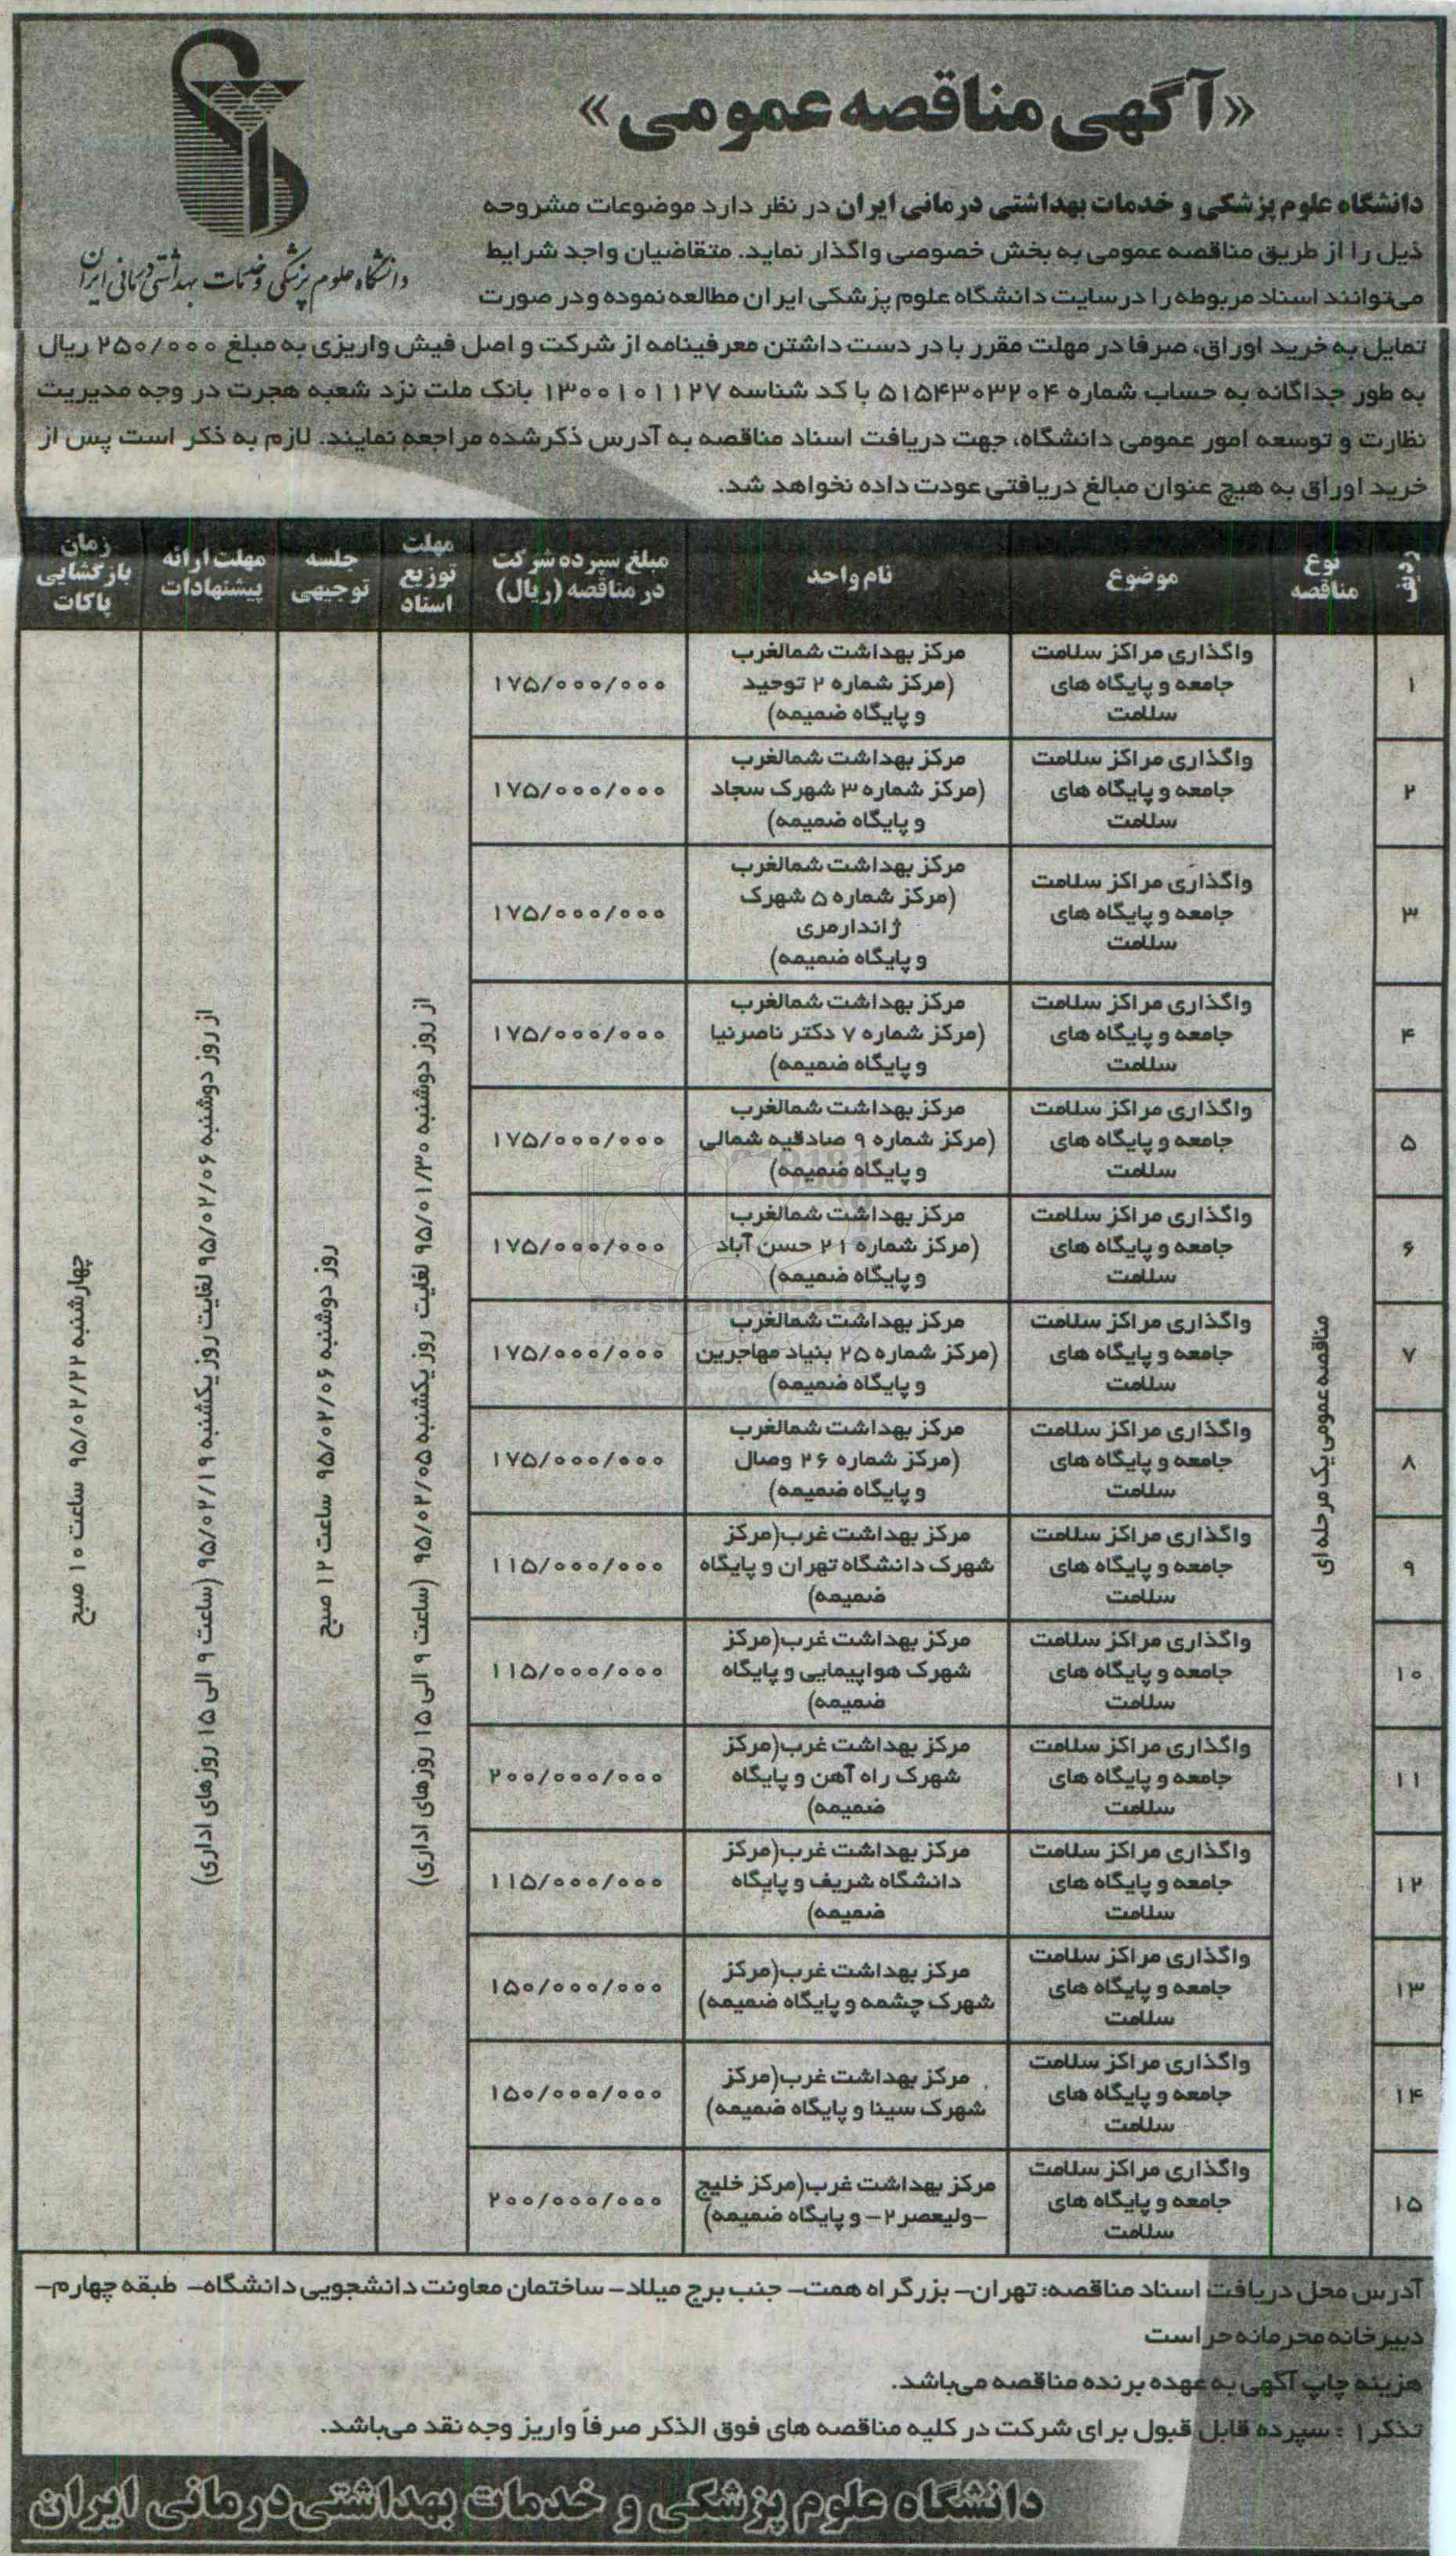 «آگهی مناقصه عمومی»
دانشگاه علوم پزشکی و خدمات بهداشتی درمانی ایران
دانشگاه علوم پزشکی و خدمات بهداشتی درمانی ایران در نظر دارد موضوعات مشروحه
ذیل را از طریق مناقصه عمومی به بخش خصوصی واگذار نماید. متقاضیان واجد شرایط
می‌توانند اسناد مربوطه را در سایت دانشگاه علوم پزشکی ایران مطالعه نموده و در صورت
تمایل به خرید اوراق، صرفا در مهلت مقرر با در دست داشتن معرفینامه از شرکت و اصل فیش واریزی به مبلغ ۲۵۰/۰۰۰ ریال
به طور جداگانه به حساب شماره ۵۱۵۴۳۰۳۲۰۴ با کد شناسه ۱۳۰۰۱۰۱۱۲۷ بانک ملت نزد شعبه هجرت در وجه مدیریت
نظارت و توسعه امور عمومی دانشگاه، جهت دریافت اسناد مناقصه به آدرس ذکر شده مراجعه نمایند. لازم به ذکر است پس از
خرید اوراق به هیچ عنوان مبالغ دریافتی عودت داده نخواهد شد.
ردیف
نوع
مناقصه
موضوع
نام واحد
مبلغ سپرده شرکت
در مناقصه (ریال)
مهلت
توزیع
اسناد
جلسه
توجیهی
مهلت ارائه
پیشنهادات
زمان
بازگشایی
پاکات
۱
مناقصه عمومی یک مرحله ای
واگذاری مراکز سلامت
جامعه و پایگاه های
سلامت
مرکز بهداشت شمالغرب
(مرکز شماره ۲ توحید
و پایگاه ضمیمه)
۱۷۵/۰۰۰/۰۰۰
از روز دوشنبه ۹۵/۰۱/۳۰ لغایت روز یکشنبه ۹۵/۰۲/۰۵ (ساعت ۹ الی ۱۵ روزهای اداری)
روز دوشنبه ۹۵/۰۲/۰۶ ساعت ۱۲ صبح
از روز دوشنبه ۹۵/۰۲/۰۶ لغایت روز یکشنبه ۹۵/۰۲/۱۹ (ساعت ۹ الی ۱۵ روزهای اداری)
چهارشنبه ۹۵/۰۲/۲۲ ساعت ۱۰ صبح
۲
واگذاری مراکز سلامت
جامعه و پایگاه های
سلامت
مرکز بهداشت شمالغرب
(مرکز شماره ۳ شهرک سجاد
و پایگاه ضمیمه)
۱۷۵/۰۰۰/۰۰۰
۳
واگذاری مراکز سلامت
جامعه و پایگاه های
سلامت
مرکز بهداشت شمالغرب
(مرکز شماره ۵ شهرک
ژاندارمری
و پایگاه ضمیمه)
۱۷۵/۰۰۰/۰۰۰
۴
واگذاری مراکز سلامت
جامعه و پایگاه های
سلامت
مرکز بهداشت شمالغرب
(مرکز شماره ۷ دکتر ناصرنیا
و پایگاه ضمیمه)
۱۷۵/۰۰۰/۰۰۰
۵
واگذاری مراکز سلامت
جامعه و پایگاه های
سلامت
مرکز بهداشت شمالغرب
(مرکز شماره ۹ صادقیه شمالی
و پایگاه ضمیمه)
۱۷۵/۰۰۰/۰۰۰
۶
واگذاری مراکز سلامت
جامعه و پایگاه های
سلامت
مرکز بهداشت شمالغرب
(مرکز شماره ۲۱ حسن آباد
و پایگاه ضمیمه)
۱۷۵/۰۰۰/۰۰۰
ParsNamadData
۷
واگذاری مراکز سلامت
جامعه و پایگاه های
سلامت
مرکز بهداشت شمالغرب
(مرکز شماره ۲۵ بنیاد مهاجرین
و پایگاه ضمیمه)
۱۷۵/۰۰۰/۰۰۰
۸
واگذاری مراکز سلامت
جامعه و پایگاه های
سلامت
مرکز بهداشت شمالغرب
(مرکز شماره ۲۶ وصال
و پایگاه ضمیمه)
۱۷۵/۰۰۰/۰۰۰
۹
واگذاری مراکز سلامت
جامعه و پایگاه های
سلامت
مرکز بهداشت غرب(مرکز
شهرک دانشگاه تهران و پایگاه
ضمیمه)
۱۱۵/۰۰۰/۰۰۰
۱۰
واگذاری مراکز سلامت
جامعه و پایگاه های
سلامت
مرکز بهداشت غرب(مرکز
شهرک هواپیمایی و پایگاه
ضمیمه)
۱۱۵/۰۰۰/۰۰۰
۱۱
واگذاری مراکز سلامت
جامعه و پایگاه های
سلامت
مرکز بهداشت غرب(مرکز
شهرک راه آهن و پایگاه
ضمیمه)
۲۰۰/۰۰۰/۰۰۰
۱۲
واگذاری مراکز سلامت
جامعه و پایگاه های
سلامت
مرکز بهداشت غرب(مرکز
دانشگاه شریف و پایگاه
ضمیمه)
۱۱۵/۰۰۰/۰۰۰
۱۳
واگذاری مراکز سلامت
جامعه و پایگاه های
سلامت
مرکز بهداشت غرب(مرکز
شهرک چشمه و پایگاه ضمیمه)
۱۵۰/۰۰۰/۰۰۰
۱۴
واگذاری مراکز سلامت
جامعه و پایگاه های
سلامت
مرکز بهداشت غرب(مرکز
شهرک سینا و پایگاه ضمیمه)
۱۵۰/۰۰۰/۰۰۰
۱۵
واگذاری مراکز سلامت
جامعه و پایگاه های
سلامت
مرکز بهداشت غرب(مرکز خلیج
-ولیعصر۲- و پایگاه ضمیمه)
۲۰۰/۰۰۰/۰۰۰
آدرس محل دریافت اسناد مناقصه: تهران- بزرگراه همت- جنب برج میلاد- ساختمان معاونت دانشجویی دانشگاه- طبقه چهارم-
دبیرخانه محرمانه حراست
هزینه چاپ آگهی به عهده برنده مناقصه می‌باشد.
تذکر۱ : سپرده قابل قبول برای شرکت در کلیه مناقصه های فوق الذکر صرفاً واریز وجه نقد می‌باشد.
دانشگاه علوم پزشکی و خدمات بهداشتی‌درمانی ایران